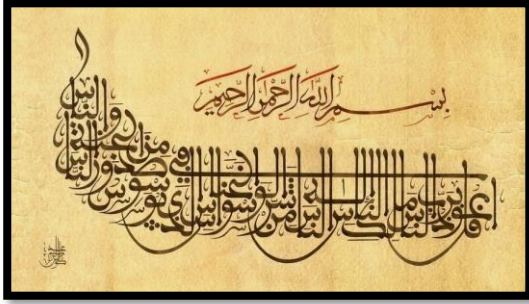 بسم الله الرحمن الرحيم
قل اعوذ برب الناس ملك الناس اله الناس من شر الوسواس الخناس الذي يوسوس في صدور الناس من الجنة والناس